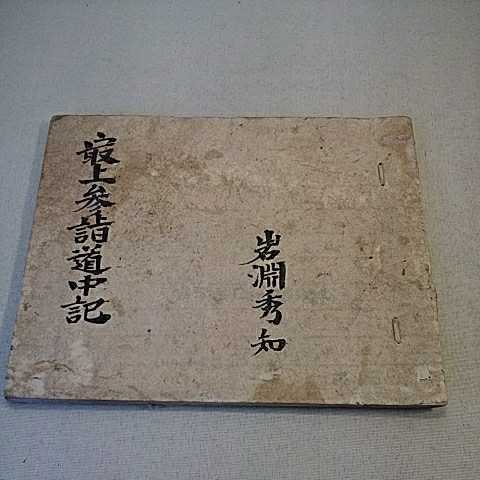 岩淵秀知
最上参詣道中記